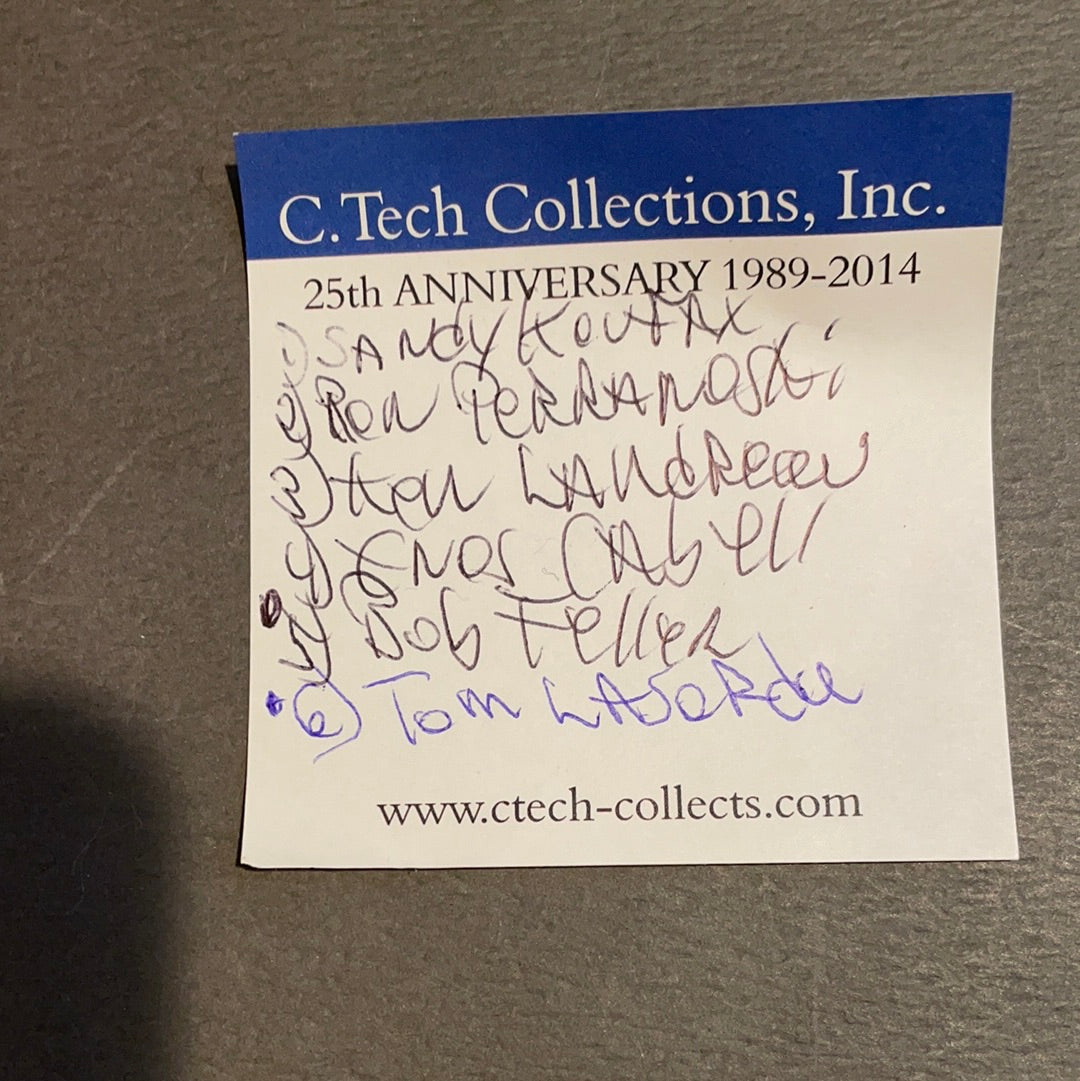 C.Tech Collections, Inc.
25th ANNIVERSARY 1989-2014
1) SANdy KouFAX
2) Ron PeRRANOSki
3) Ken LANdReau
4) ENOS CAbell
5) Bob Feller
6) Tom LASORda
www.ctech-collects.com